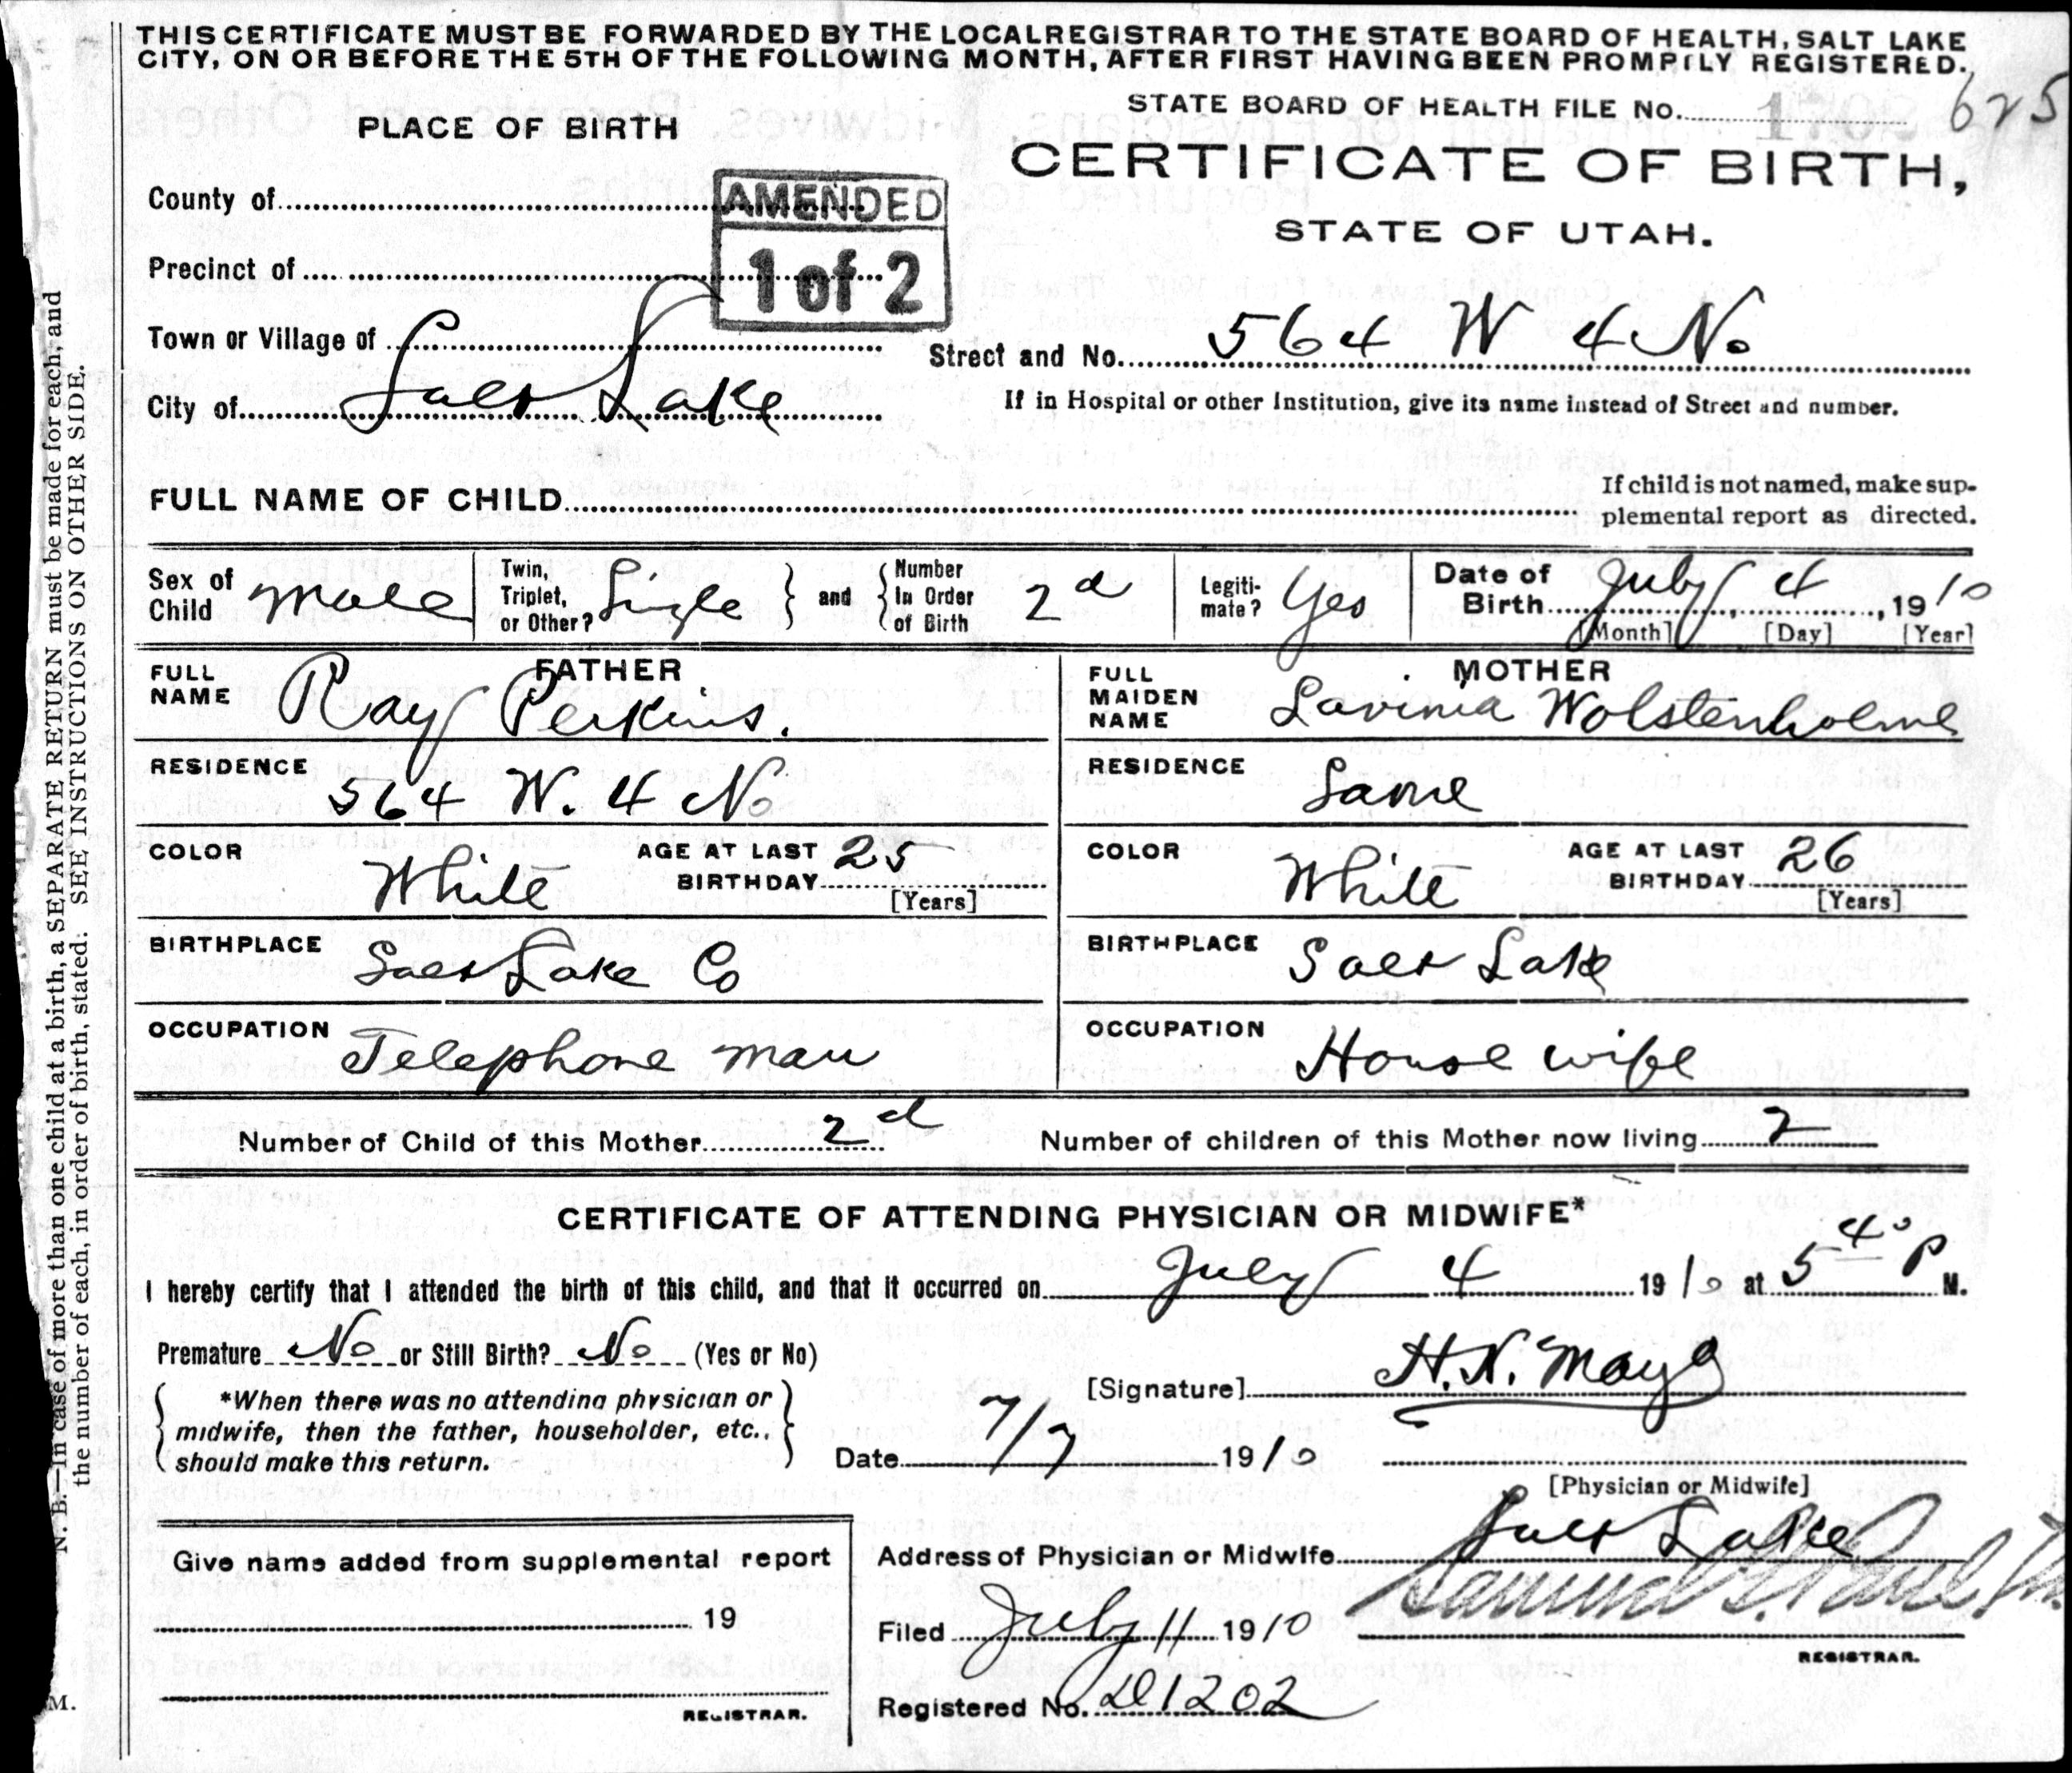 THIS CERTIFICATE MUST BE FORWARDED BY THE LOCAL REGISTRAR TO THE STATE BOARD OF HEALTH, SALT LAKE
CITY, ON OR BEFORE THE 5TH OF THE FOLLOWING MONTH, AFTER FIRST HAVING BEEN PROMPTLY REGISTERED.
STATE BOARD OF HEALTH FILE No. 625
PLACE OF BIRTH
CERTIFICATE OF BIRTH,
STATE OF UTAH.
County of
AMENDED
1 of 2
Precinct of
Town or Village of
Street and No. 564 W 4 No.
City of Salt Lake
If in Hospital or other Institution, give its name instead of Street and number.
FULL NAME OF CHILD
If child is not named, make sup-
plemental report as directed.
Sex of Child male
Twin, Triplet, or Other? Single and Number In Order of Birth 2d
Legiti-mate? Yes
Date of Birth July 4, 1910
[Month] [Day] [Year]
FATHER
FULL NAME Ray Perkins.
RESIDENCE 564 W. 4 No
COLOR White AGE AT LAST BIRTHDAY 25 [Years]
BIRTHPLACE Salt Lake Co
OCCUPATION Telephone man
MOTHER
FULL MAIDEN NAME Lavinia Wolstenholme
RESIDENCE Same
COLOR White AGE AT LAST BIRTHDAY 26 [Years]
BIRTHPLACE Salt Lake
OCCUPATION House wife
Number of Child of this Mother 2d Number of children of this Mother now living 2
CERTIFICATE OF ATTENDING PHYSICIAN OR MIDWIFE*
I hereby certify that I attended the birth of this child, and that it occurred on July 4 1910 at 5 40 P M.
Premature No or Still Birth? No (Yes or No)
*When there was no attending physician or
midwife, then the father, householder, etc.,
should make this return.
[Signature] H. N. Mayo
Date 7/7 1910
[Physician or Midwife]
Address of Physician or Midwife Salt Lake
Give name added from supplemental report
19
REGISTRAR.
Filed July 11 1910
Samuel G. Paul
REGISTRAR.
Registered No. D1202
N. B.—In case of more than one child at a birth, a SEPARATE RETURN must be made for each, and
the number of each, in order of birth, stated. SEE INSTRUCTIONS ON OTHER SIDE.
M.